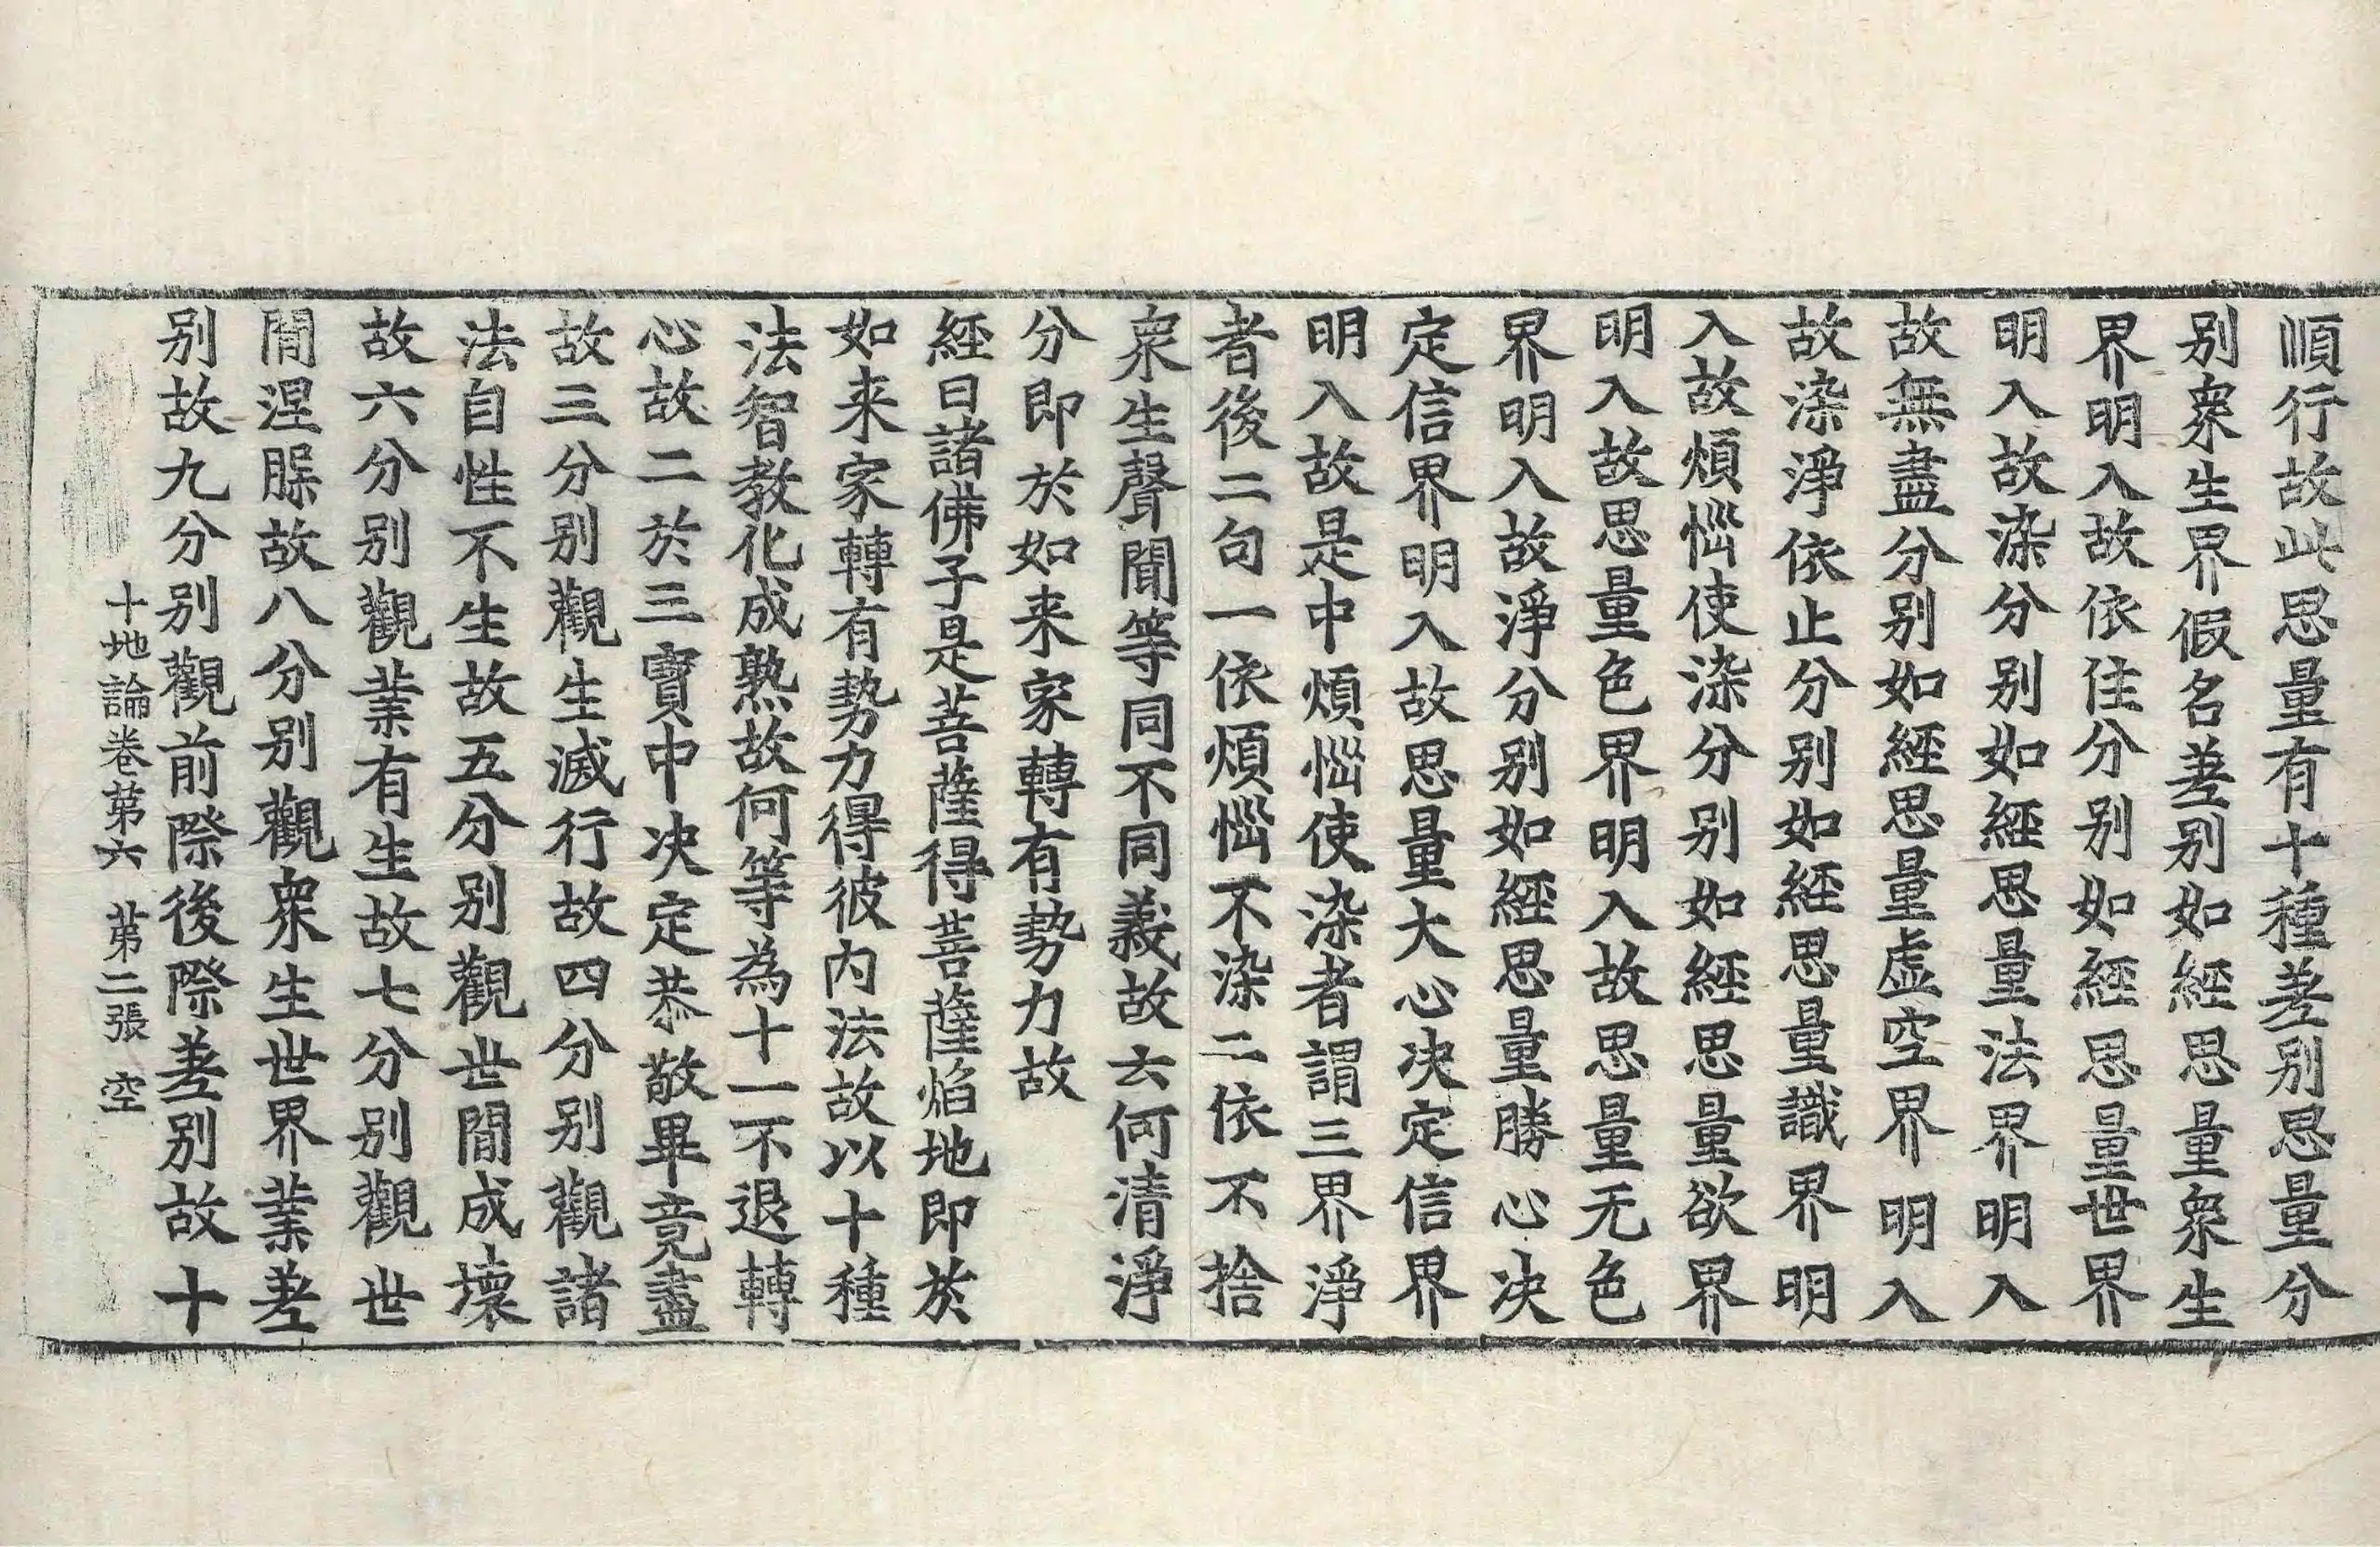 順行故此思量有十種差別思量分
別衆生界假名差別如經思量衆生
界明入故依住分別如經思量世界
明入故染分別如經思量法界明入
故無盡分別如經思量虛空界明入
故染淨依止分別如經思量識界明
入故煩惱使染分別如經思量欲界
明入故思量色界明入故思量无色
界明入故淨分別如經思量勝心决
定信界明入故思量大心决定信界
明入故是中煩惱使染者謂三界淨
者後二句一依煩惱不染二依不捨
衆生聲聞等同不同義故云何清淨
分即於如来家轉有勢力故
經曰諸佛子是菩薩得菩薩焰地即於
如来家轉有勢力得彼内法故以十種
法智教化成熟故何等為十一不退轉
心故二於三寶中决定恭敬畢竟盡
故三分別觀生滅行故四分別觀諸
法自性不生故五分別觀世間成壞
故六分別觀業有生故七分別觀世
間涅槃故八分別觀衆生世界業差
別故九分別觀前際後際差別故十
十地論卷第六 第二張 空